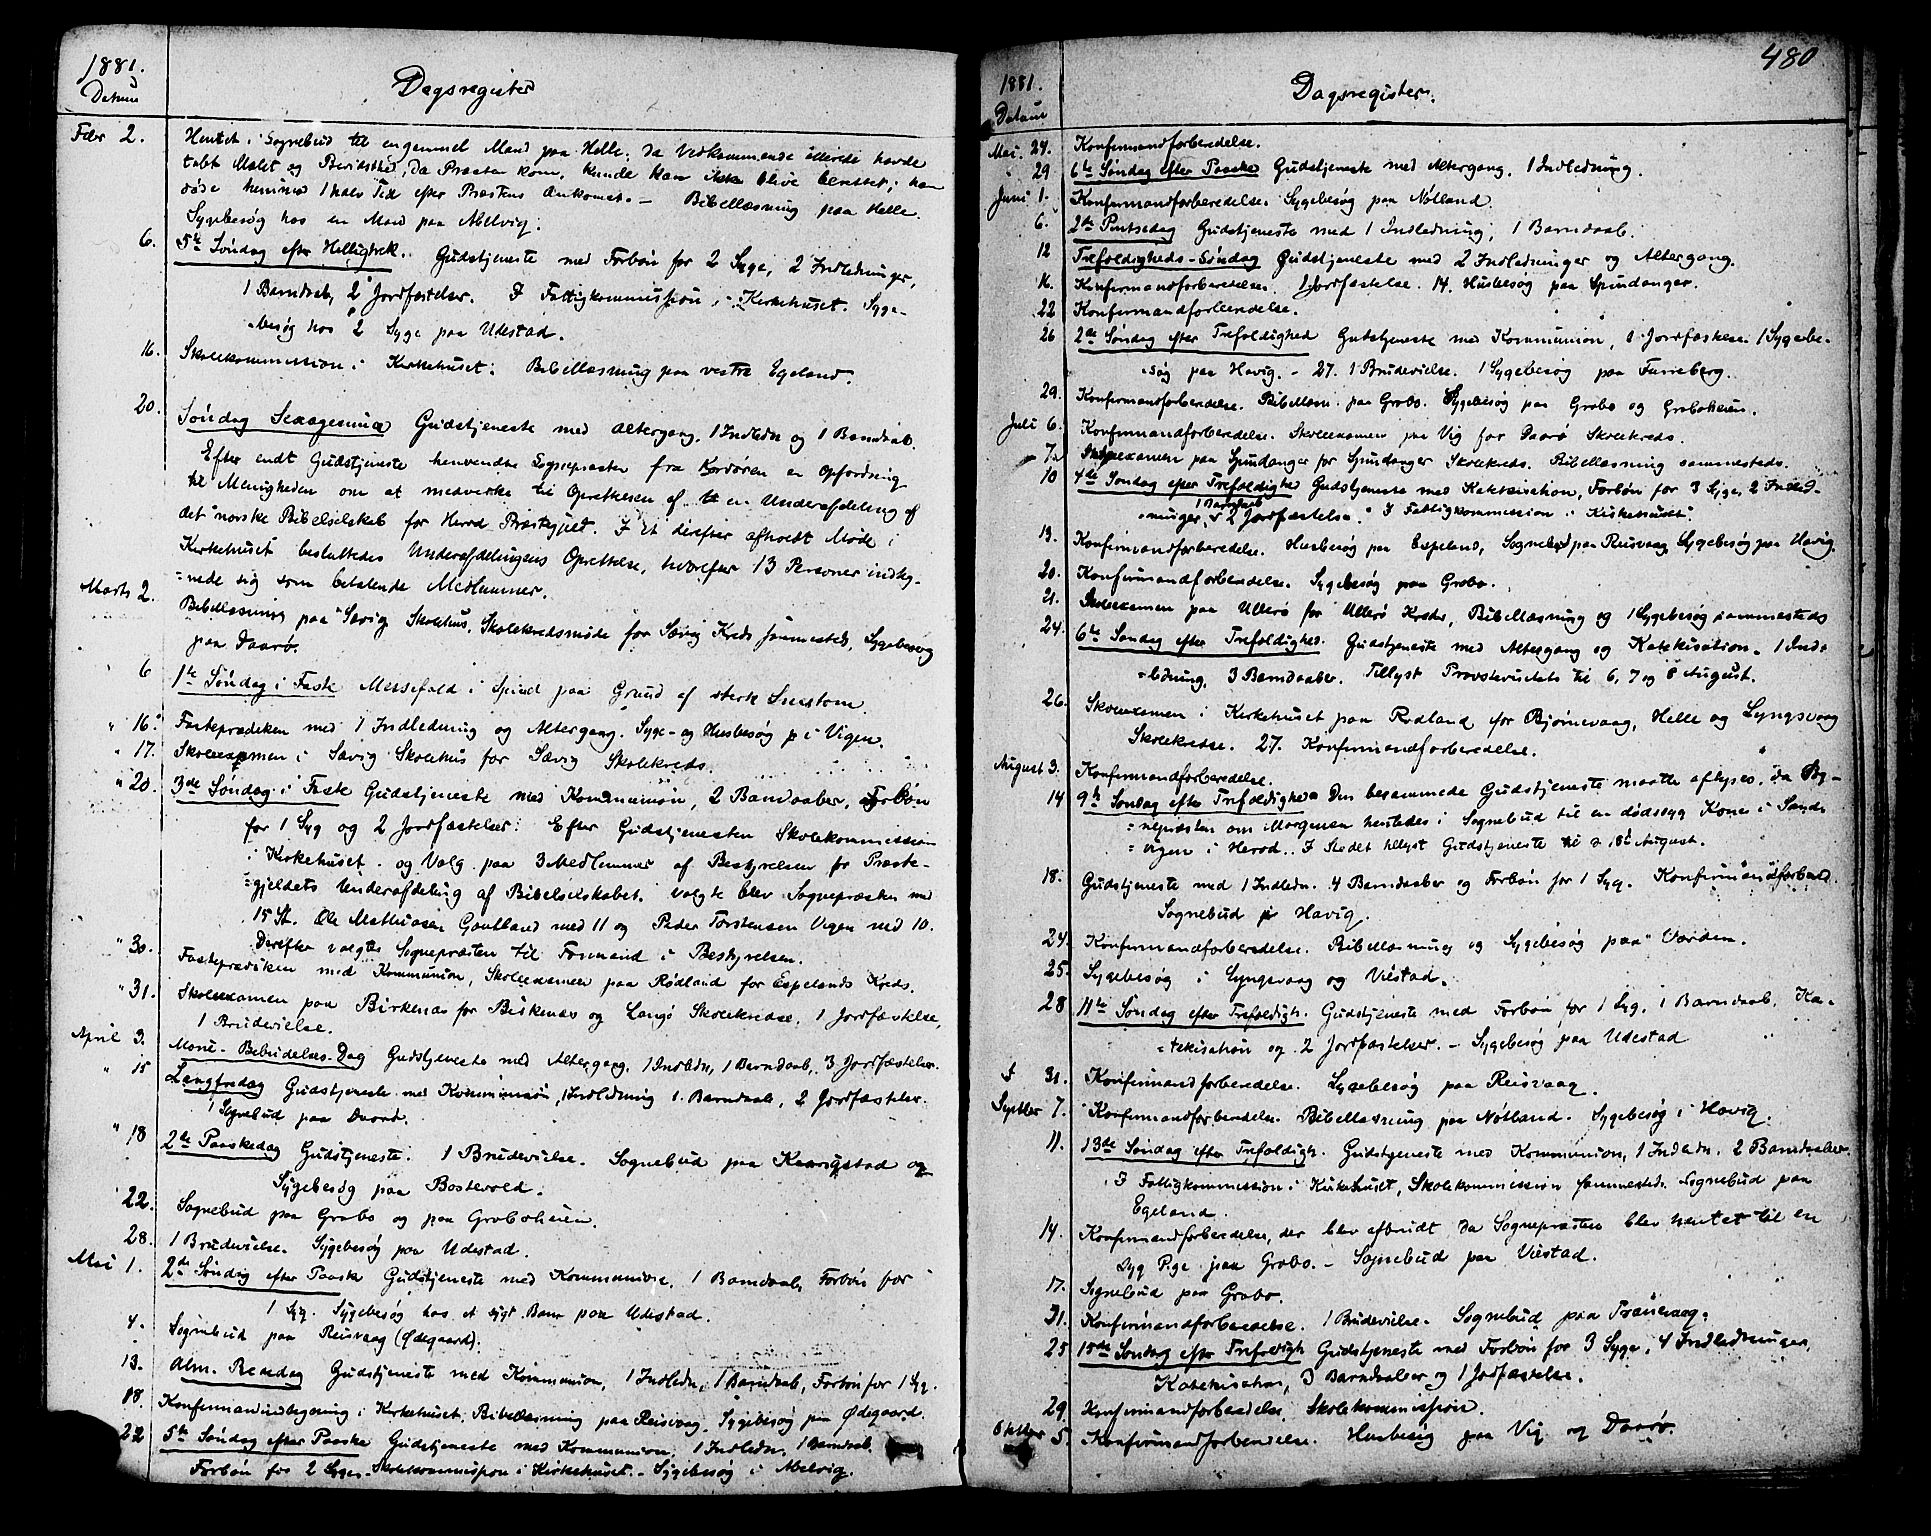 1881.
Datum
Dagsregister
Febr 2. Hentet i Sognebud til en gammel Mand paa Helle; da Vedkommende allerede havde
tabt Mælet og Bevidsthed, da Præsten kom, kunde han ikke blive berettet; han
døde henimod 1 halv Tid efter Præstens Ankomst. — Bibellæsning paa Helle.
Sygebesøg hos en Mand paa Melvig.
6. 5te Søndag efter Helligtrek. Gudstjeneste med Forbøn for 2 Syge, 2 Indledninger,
1 Barndaab, 2 Jordfæstelser. I Fattigkommission i Kirkehuset. Syge-
besøg hos 2 Syge paa Udestad.
16. Skolekommission i Kirkehuset. Bibellæsning paa vestre Egeland.
20. Søndag Sexagesima Gudstjeneste med Altergang, 1 Indledn og 1 Barndaab.
Efter endt Gudstjeneste henvendte Sognepræsten fra Kordøren en Opfordning
til Menigheden om at medvirke til Oprettelsen af en Underafdeling af
det norske Bibelselskab for Herred Præstegjeld. I Et derefter afholdt Møde i
Kirkehuset besluttedes Underafdelingens Oprettelse, hvorefter 13 Personer indteg-
=nede sig som betalende Medlemmer.
Marts 2. Bibellæsning paa Sævig Skolehus, Skolekredsmøde for Sævig Kreds sammesteds, Sygebesøg
paa Daarø.
6 1te Søndag i Faste Messefald i Spind paa Grund af stærk Snestorm.
" 16. Fasteprædiken med 1 Indledning og Altergang. Syge- og Husbesøg p i Vigen.
" 17. Skoleexamen i Sævig Skolehus for Sævig Skolekreds.
" 20. 3de Søndag i Faste Gudstjeneste med Kommunion, 2 Barndaaber, Forbøn
for 1 Syg og 2 Jordfæstelser. Efter Gudstjenesten Skolekommission
i Kirkehuset og Valg paa 3 Medlemmer af Bestyrelsen for Præste-
=gjeldets Underafdeling af Bibelselskabet. Valgte blev Sognepræsten med
15 St. Ole Mathiasen Gautland med 11 og Peder Torstensen Vigen med 10.
Derefter valgtes Sognepræsten til Formand i Bestyrelsen.
" 30. Fasteprædiken med Kommunion, Skoleexamen paa Rødland for Espelands Kreds.
" 31. Skoleexamen paa Birkenæs for Birkenæs og Langø Skolekredse, 1 Jordfæstelse,
1 Brudevielse.
April 3. Mariæ Bebudelses-Dag Gudstjeneste med Altergang, 1 Indledn, 1 Barndaab, 3 Jordfæstelser.
" 15 Langfredag Gudstjeneste med Kommunion, 1 Indledning 1 Barndaab, 2 Jordfæstelser.
1 Sognebud paa
" 18 2de Paaskedag Gudstjeneste. 1 Brudevielse. Sognebud paa og
Sygebesøg paa Bostevold.
22. Sognebud paa Grobo og paa Groboheien.
28. 1 Brudevielse. Sygebesøg paa Udestad.
Mai 1. 2de Søndag efter Paaske Gudstjeneste med Kommunion, 1 Barndaab, Forbøn for
1 Syg. Sygebesøg hos et sygt Barn paa Udestad.
4. Sognebud paa Reisvaag (Ødegaard).
13. Alm. Bededag Gudstjeneste med Kommunion, 1 Indledn, 1 Barndaab, Forbøn for 1 Syg.
18. Konfirmandindtegning i Kirkehuset, Bibellæsning paa Reisvaag, Sygebesøg paa Ødegaard.
22 5te Søndag efter Paaske Gudstjeneste med Kommunion, 1 Indledn, 1 Barndaab
Forbøn for 2 Syge. Skolekommission i Kirkehuset. - Sygebesøg i Melvig.
480
1881.
Datum
Dagsregister.
Mai. 24. Konfirmandforberedelse.
" 29 6te Søndag efter Paaske Gudstjeneste med Altergang, 1 Indledning.
Juni 1. Konfirmandforberedelse. Sygebesøg paa Nøtland.
6. 2den Pintsedag Gudstjeneste med 1 Indledning, 1 Barndaab.
12 Trefoldigheds-Søndag Gudstjeneste med 2 Indledninger og Altergang.
16. Konfirmandforberedelse. 1 Jordfæstelse. 14. Husbesøg paa Spindanger.
22 Konfirmandforberedelse.
26 2de Søndag efter Trefoldighed Gudstjeneste med Kommunion, 1 Jordfæstelse 1 Sygebe-
søg paa Havig. - 27. 1 Brudevielse. 1 Sygebesøg paa Farreberg.
29. Konfirmandforberedelse. Bibellæsn. paa Grobo. Sygebesøg paa Grobo og Groboheien.
Juli 6. Konfirmandforberedelse. Skoleexamen paa Vig for Daarø Skolekreds.
7. Skoleexamen paa Spindanger for Spindanger Skolekreds. Bibellæsning sammesteds.
10 4de Søndag efter Trefoldighed Gudstjeneste med Katekisation, Forbøn for 3 Syge, 2 Indled-
1 Barndaab
=ninger, & 2 Jordfæstelser. I Fattigkommission i Kirkehuset.
13. Konfirmandforberedelse. Husbesøg paa Espeland, Sognebud paa Reisvaag Sygebesøg paa Havig.
20. Konfirmandforberedelse. Sygebesøg paa Grobo.
21. Skoleexamen paa Ullerø for Ullerø Kreds, Bibellæsning og 1 Sygebesøg sammesteds
24. 6te Søndag efter Trefoldighed. Gudstjeneste med Altergang og Katekisation. 1 Ind-
=ledning, 3 Barndaaber. Tillyst Provstevisitats til 6, 7 og 8 August.
26. Skoleexamen i Kirkehuset paa Rødland for Bjørnevaag, Helle og Lyngsvaag
Skolekredse. 27. Konfirmandforberedelse.
August 3. Konfirmandforberedelse.
14 9de Søndag efter Trefoldighed Den berammede Gudstjeneste maatte aflyses, da Sog-
=nepræsten om Morgenen hentedes i Sognebud til en dødssyg Kone i Sande
=vigen i Herad. I Stedet tillyst Gudstjeneste til d 18de August.
18. Gudstjeneste med 1 Indledn. 4 Barndaaber og Forbøn for 1 Syg. Konfirmandforbered.
Sognebud p Havig.
24. Konfirmandforberedelse. Bibellæsning og Sygebesøg paa Varden.
25. Sygebesøg i Lyngsvaag og Viestad.
28 11te Søndag efter Trefoldigh. Gudstjeneste med Forbøn for 1 Syg, 1 Barndaab, Ka-
=tekisation og 2 Jordfæstelser. - Sygebesøg paa Udestad
31. Konfirmandforberedelse. Sygebesøg paa Reisvaag.
Septber 7. Konfirmandforberedelse Bibellæsning paa Nøtland. Sygebesøg i Havig.
11. 13de Søndag efter Trefoldigh. Gudstjeneste med Kommunion, 1 Indledn. 2 Barndaaber.
I Fattigkommission i Kirkehuset, Skolekommission sammesteds. Sognebud paa
Egeland.
14. Konfirmandforberedelse, der blev afbrudt, da Sognepræsten blev hentet til en
syg Pige paa Grobo. - Sognebud paa Viestad.
17. Sognebud paa Grobo.
21. Konfirmandforberedelse. 1 Brudevielse. Sognebud paa Tranevaag.
25 15de Søndag efter Trefoldigh Gudstjeneste med Forbøn for 3 Syge, 4 Indledninger,
Katekisation, 3 Barndaaber og 1 Jordfæstelse.
29. Konfirmandforberedelse Skolekommission.
Oktber 5. Konfirmandforberedelse. Husbesøg paa Vig og Daarø.